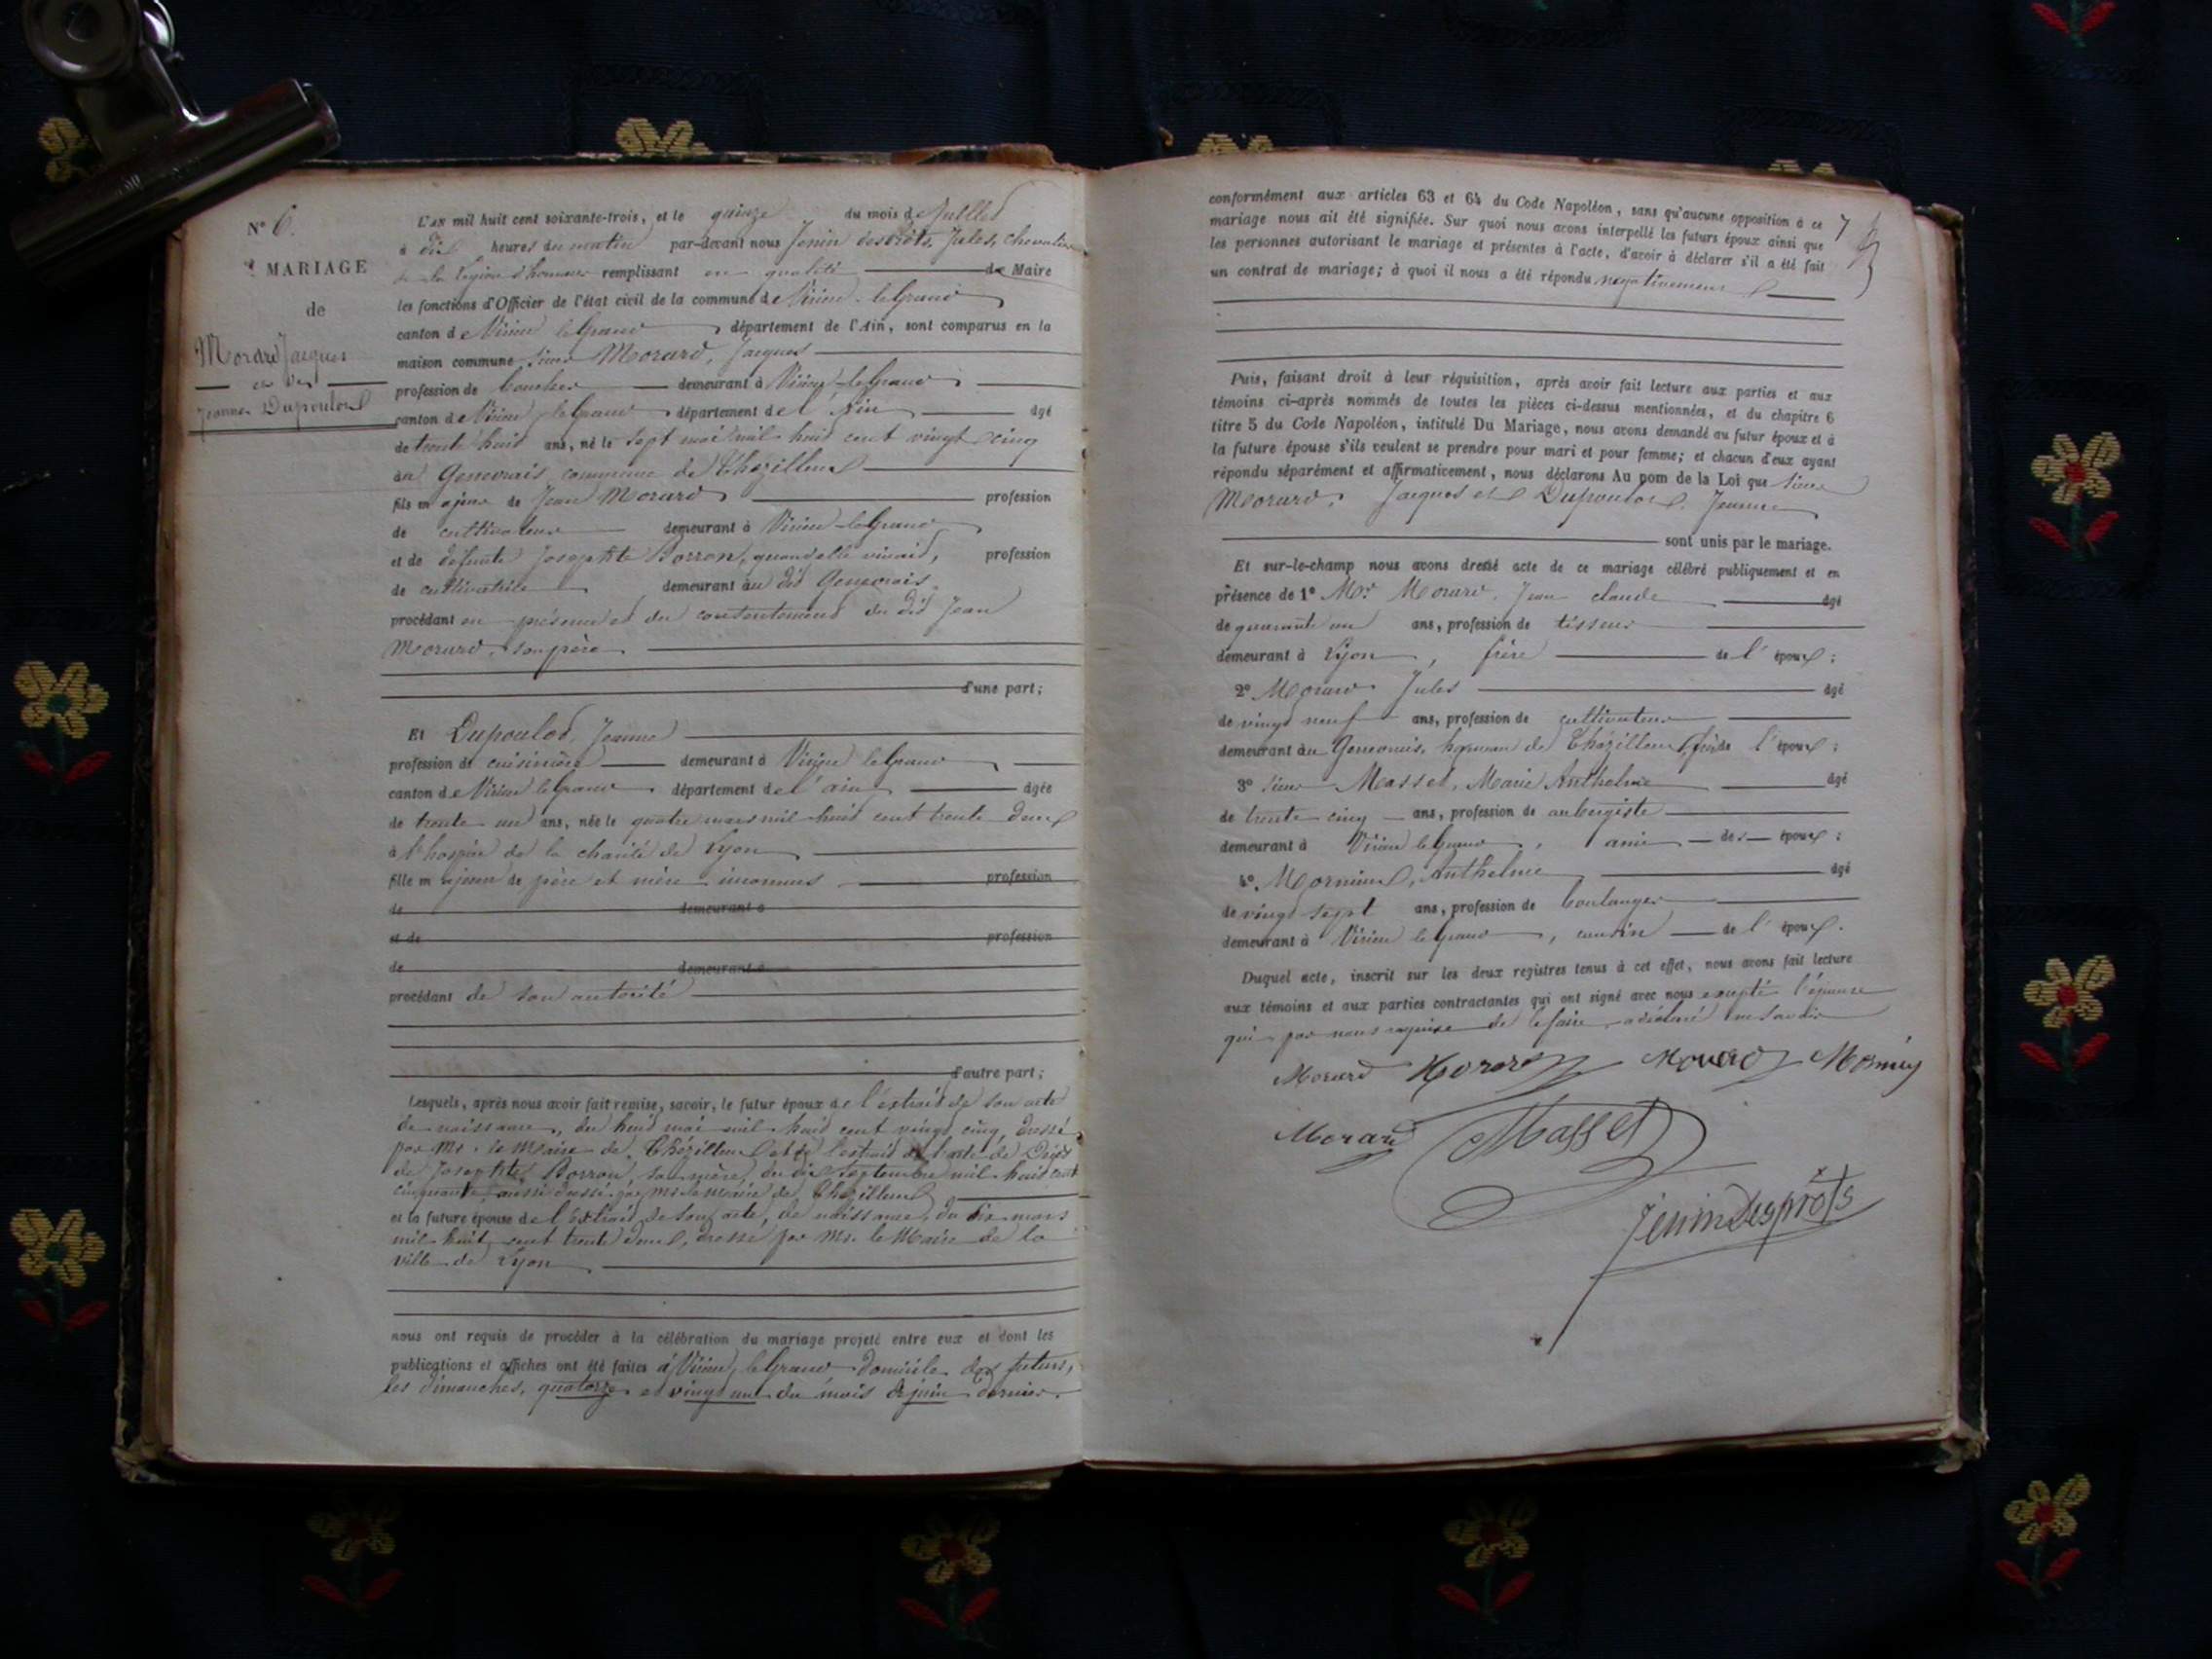 N° 6.
MARIAGE
de
Morard Jacques
et de
Jeanne Dupoulot
L'an mil huit cent soixante-trois, et le quinze du mois de Juillet
à dix heures du matin par-devant nous Jenin desprôts, Jules, chevalier
de la Légion d'honneur remplissant en qualité de Maire
les fonctions d'Officier de l'état civil de la commune de Virieu-le-Grand
canton de Virieu le Grand département de l'Ain, sont comparus en la
maison commune, sieur Morard, Jacques
profession de boucher demeurant à Virieu-le-Grand
canton de Virieu le Grand département de l'Ain âgé
de trente huit ans, né le sept mai mil huit cent vingt cinq
au Genevrais, commune de Thézillieu
fils majeur de Jean Morard profession
de cultivateur demeurant à Virieu-le-Grand
et de défunte Josephte Borron, quand elle vivait, profession
de cultivatrice demeurant au dit Genevrais
procédant en présence et du consentement du dit Jean
Morard, son père
d'une part;
Et Dupoulot, Jeanne
profession de cuisinière demeurant à Virieu le Grand
canton de Virieu le Grand département de l'ain âgée
de trente un ans, née le quatre mars mil huit cent trente deux
à l'hospice de la charité de Lyon
fille majeure de père et mère inconnus profession
de demeurant à
et de profession
de demeurant à
procédant de son autorité
d'autre part;
Lesquels, après nous avoir fait remise, savoir, le futur époux de l'extrait de son acte
de naissance, du huit mai mil huit cent vingt cinq, dressé
par Mr. le Maire de Thézillieu et de l'extrait de l'acte de Décès
de Josephte Borron, sa mère, du dix septembre mil huit cent
cinquante, aussi dressé par Mr le Maire de Thézillieu
et la future épouse de l'extrait de son acte, de naissance, du six mars
mil huit cent trente deux, dressé par Mr. le Maire de la
ville de Lyon
nous ont requis de procéder à la célébration du mariage projeté entre eux et dont les
publications et affiches ont été faites à Virieu, le Grand domicile des futurs,
les dimanches, quatorze et vingt un du mois de juin dernier.
7
conformément aux articles 63 et 64 du Code Napoléon, sans qu'aucune opposition à ce
mariage nous ait été signifiée. Sur quoi nous avons interpellé les futurs époux ainsi que
les personnes autorisant le mariage et présentes à l'acte, d'avoir à déclarer s'il a été fait
un contrat de mariage; à quoi il nous a été répondu négativement
Puis, faisant droit à leur réquisition, après avoir fait lecture aux parties et aux
témoins ci-après nommés de toutes les pièces ci-dessus mentionnées, et du chapitre 6
titre 5 du Code Napoléon, intitulé Du Mariage, nous avons demandé au futur époux et à
la future épouse s'ils veulent se prendre pour mari et pour femme; et chacun d'eux ayant
répondu séparément et affirmativement, nous déclarons Au nom de la Loi que sieur
Morard, Jacques et Dupoulot, Jeanne
sont unis par le mariage.
Et sur-le-champ nous avons dressé acte de ce mariage célébré publiquement et en
présence de 1° Mr. Morard, Jean claude âgé
de quarante un ans, profession de tisseur
demeurant à Lyon, frère de l'époux;
2° Morard Jules âgé
de vingt neuf ans, profession de cultivateur
demeurant au Genevrais, hameau de Thézillieu, frère de l'époux;
3° sieur Masset, Marie Anthelme âgé
de trente cinq ans, profession de aubergiste
demeurant à Virieu le Grand, ami des époux;
4° Mornieux, Anthelme âgé
de vingt sept ans, profession de boulanger
demeurant à Virieu le Grand, cousin de l'époux.
Duquel acte, inscrit sur les deux registres tenus à cet effet, nous avons fait lecture
aux témoins et aux parties contractantes qui ont signé avec nous excepté l'épouse
qui par nous requise de le faire a déclaré ne savoir
Morard Morard Morard
Morard Masset
Jenin Desprôts